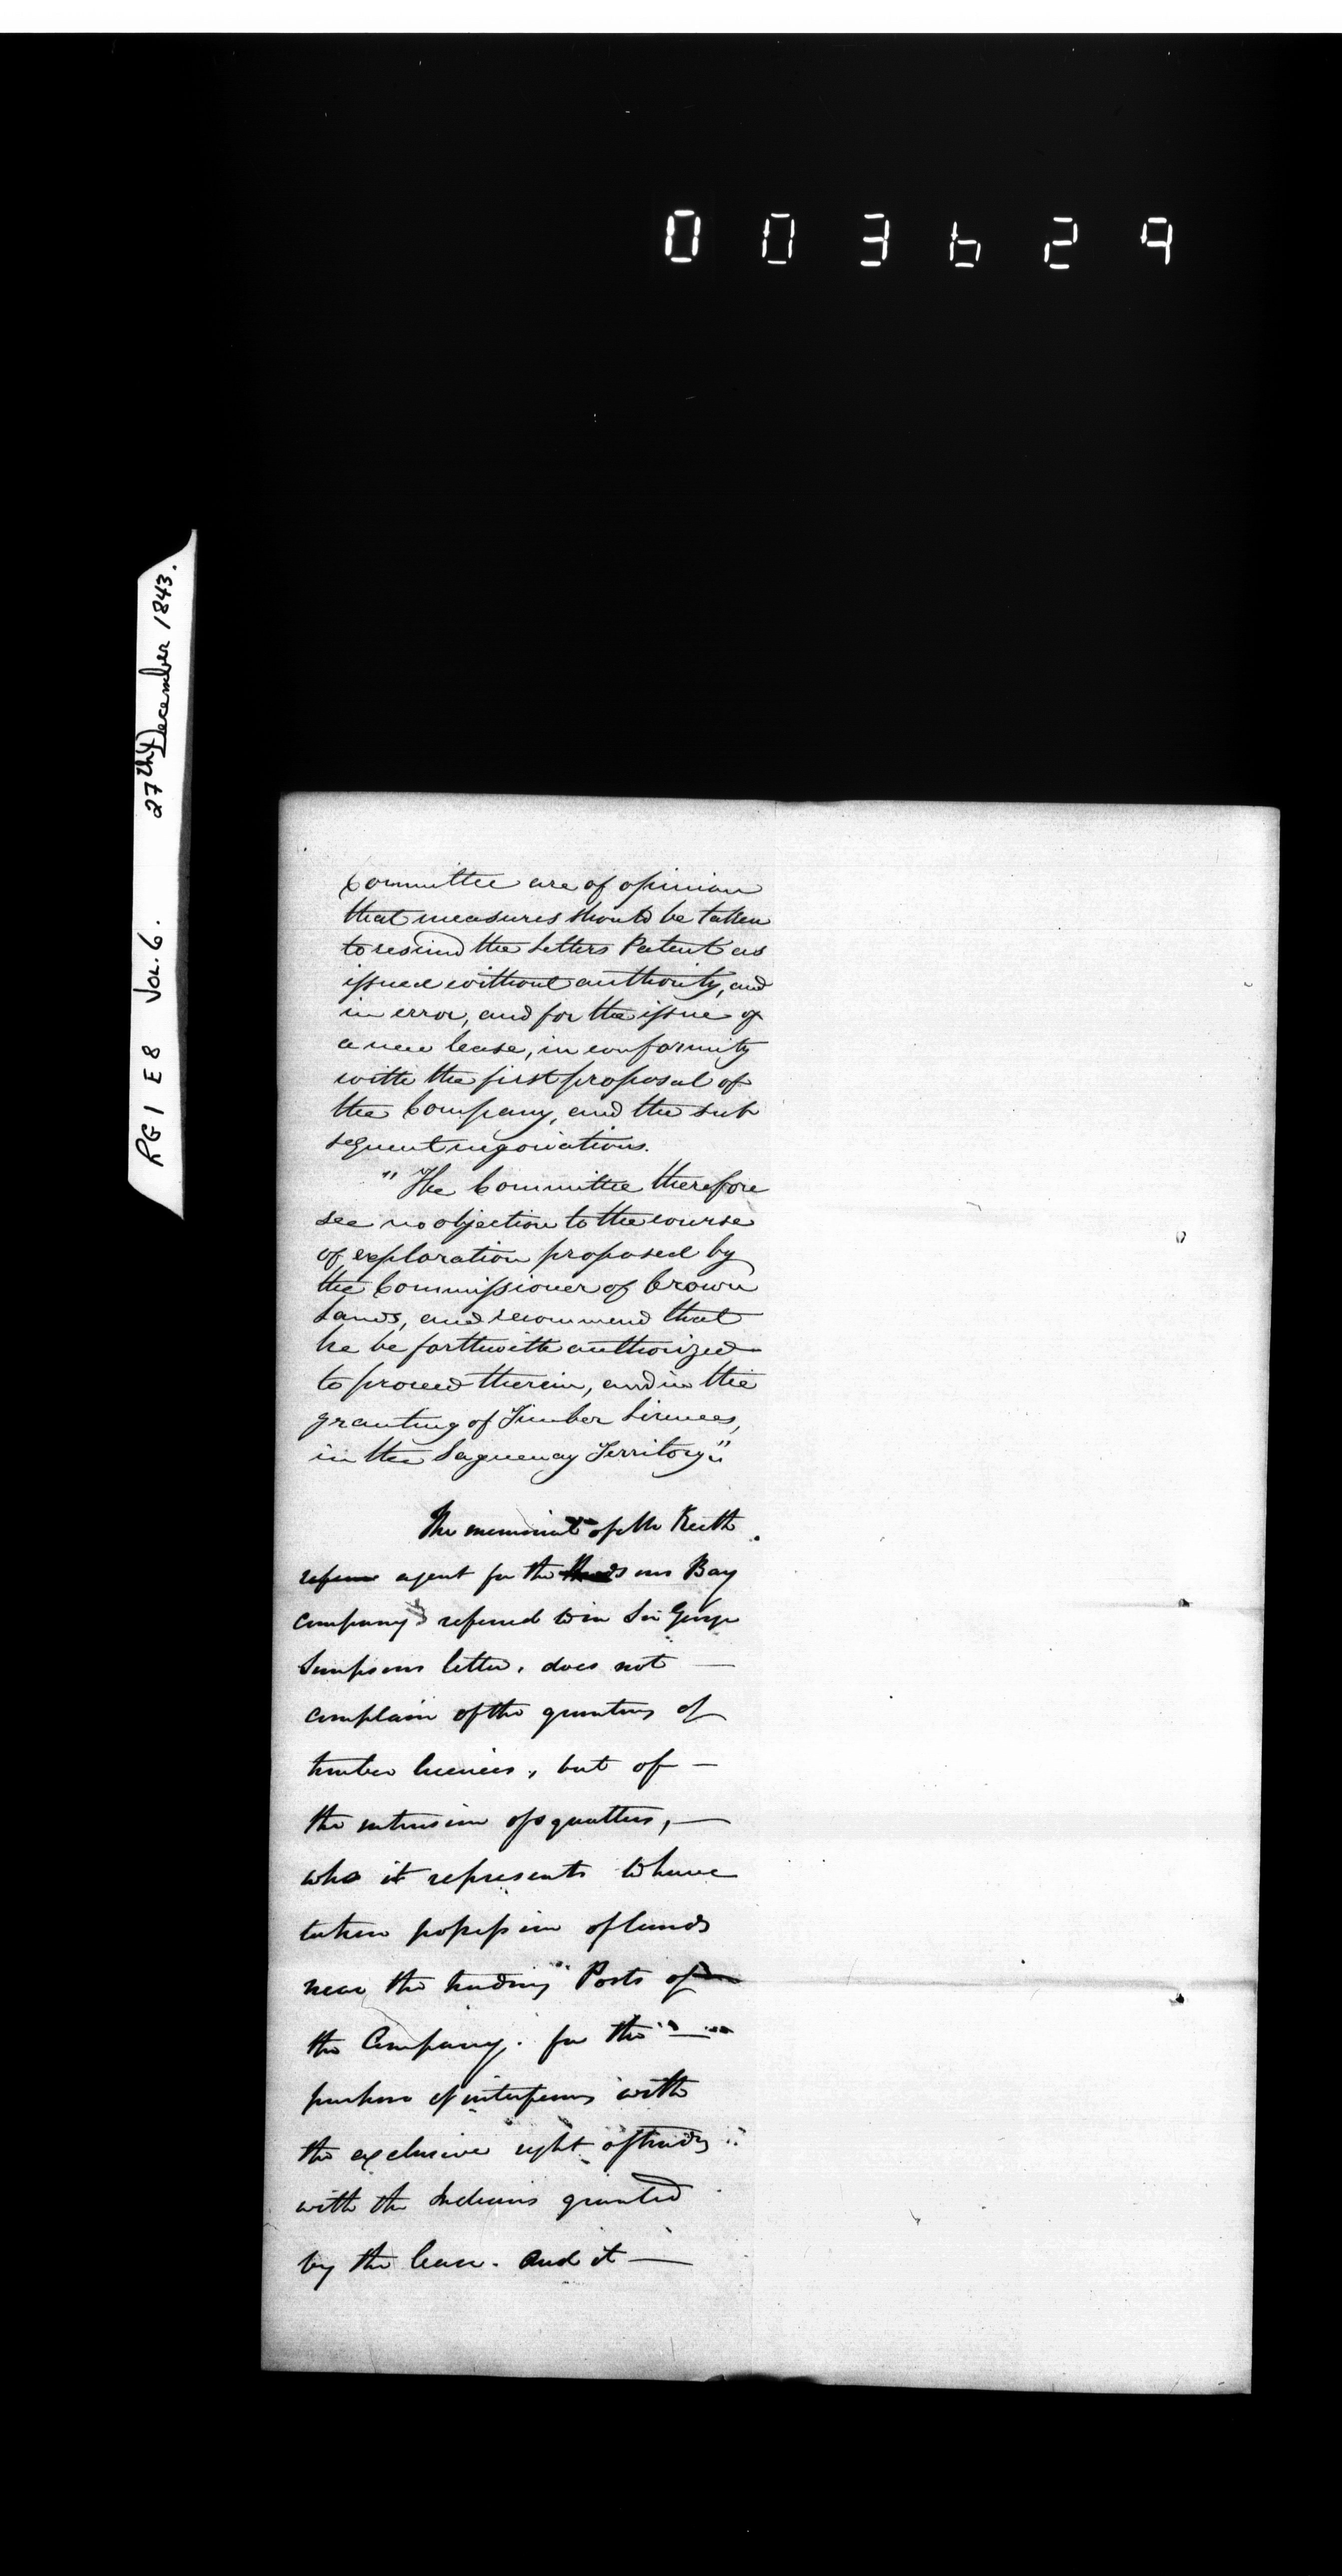 003629
RG 1 E 8 Vol. 6. 27th December 1843.
Committee are of opinion
that measures should be taken
to rescind the Letters Patent as
issued without authority, and
in error, and for the issue of
a new lease, in conformity
with the first proposal of
the Company, and the sub
sequent negociations.
"The Committee therefore
see no objection to the course
of exploration proposed by
the Commissioner of Crown
Lands, and recommend that
he be forthwith authorized
to proceed therein, and in the
granting of Timber Licences,
in the Saguenay Territory."
The memorial of Mr Keith
agent for the Hudsons Bay
Company referred to in Sir George
Simpsons letter, does not
complain of the granting of
timber licences, but of
the intrusion of squatters,
who it represents to have
taken possession of lands
near the trading Posts of
the Company. for the
purpose of interfering with
the exclusive right of trading
with the Indians granted
by the lease. And it